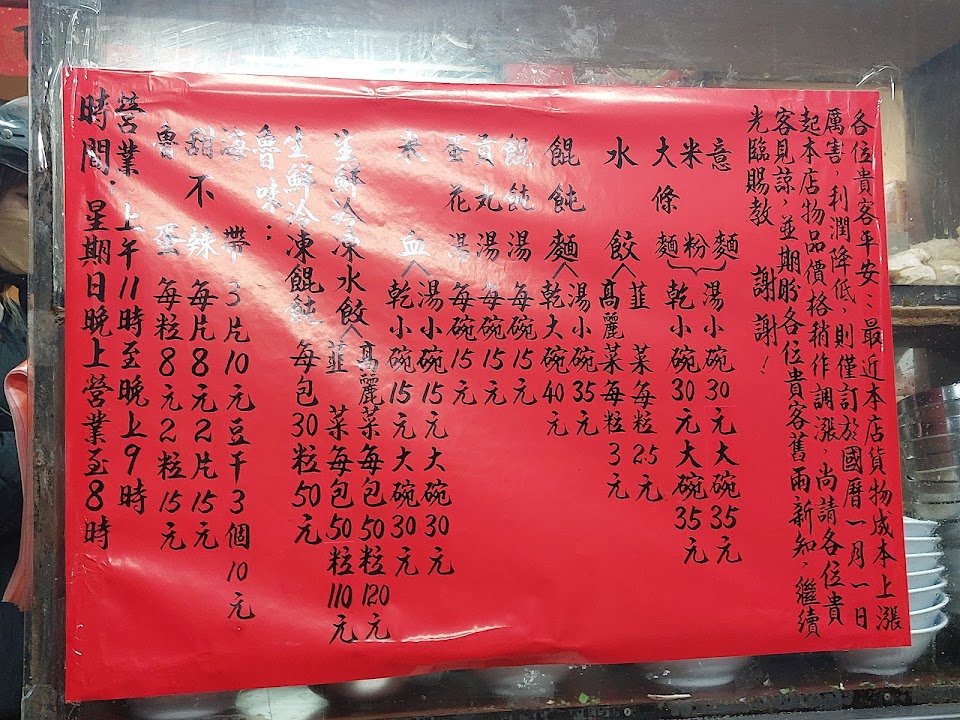 各位貴客年安：最近本店貨物成本上漲
厲害，利潤降低，則僅訂於國曆一月一日
起本店物品價格稍作調漲，尚請各位貴
客見諒，並期盼各位貴客舊雨新知，繼續
光臨賜教　謝謝！
意麵
米粉
大條麵
湯小碗30元大碗35元
乾小碗30元大碗35元
水餃
韮菜每粒2.5元
高麗菜每粒3元
餛飩麵
湯小碗35元
乾大碗40元
餛飩湯每碗15元
貢丸湯每碗15元
蛋花湯每碗15元
米血
湯小碗15元大碗30元
乾小碗15元大碗30元
生鮮冷凍水餃
高麗菜每包50粒120元
韮菜每包50粒110元
生鮮冷凍餛飩每包30粒50元
魯味：
海帶3片10元豆干3個10元
甜不辣每片8元2片15元
魯蛋每粒8元2粒15元
營業時間：
上午11時至晚上9時
星期日晚上營業至8時